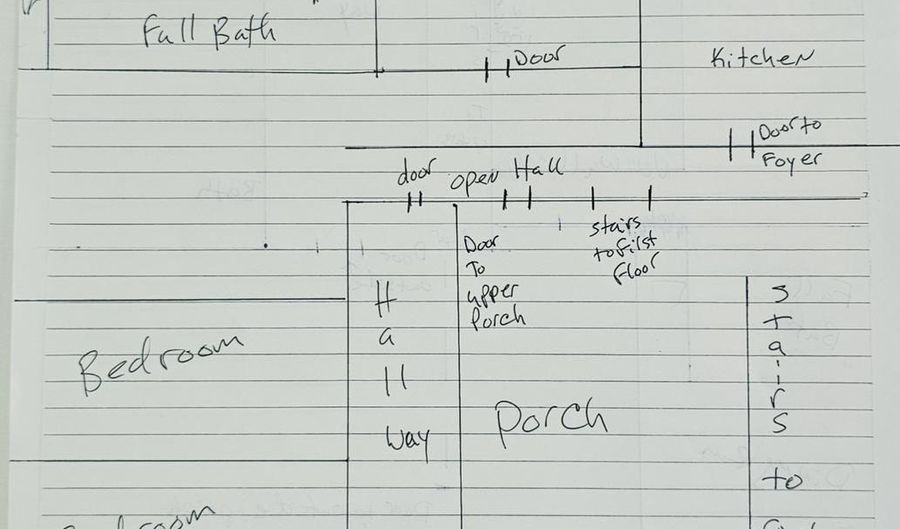 Full Bath
Door
Kitchen
Door to
Foyer
door
open Hall
Door
To
upper
Porch
stairs
to first
floor
Hallway
Bedroom
Porch
Stairs
to
Bedroom